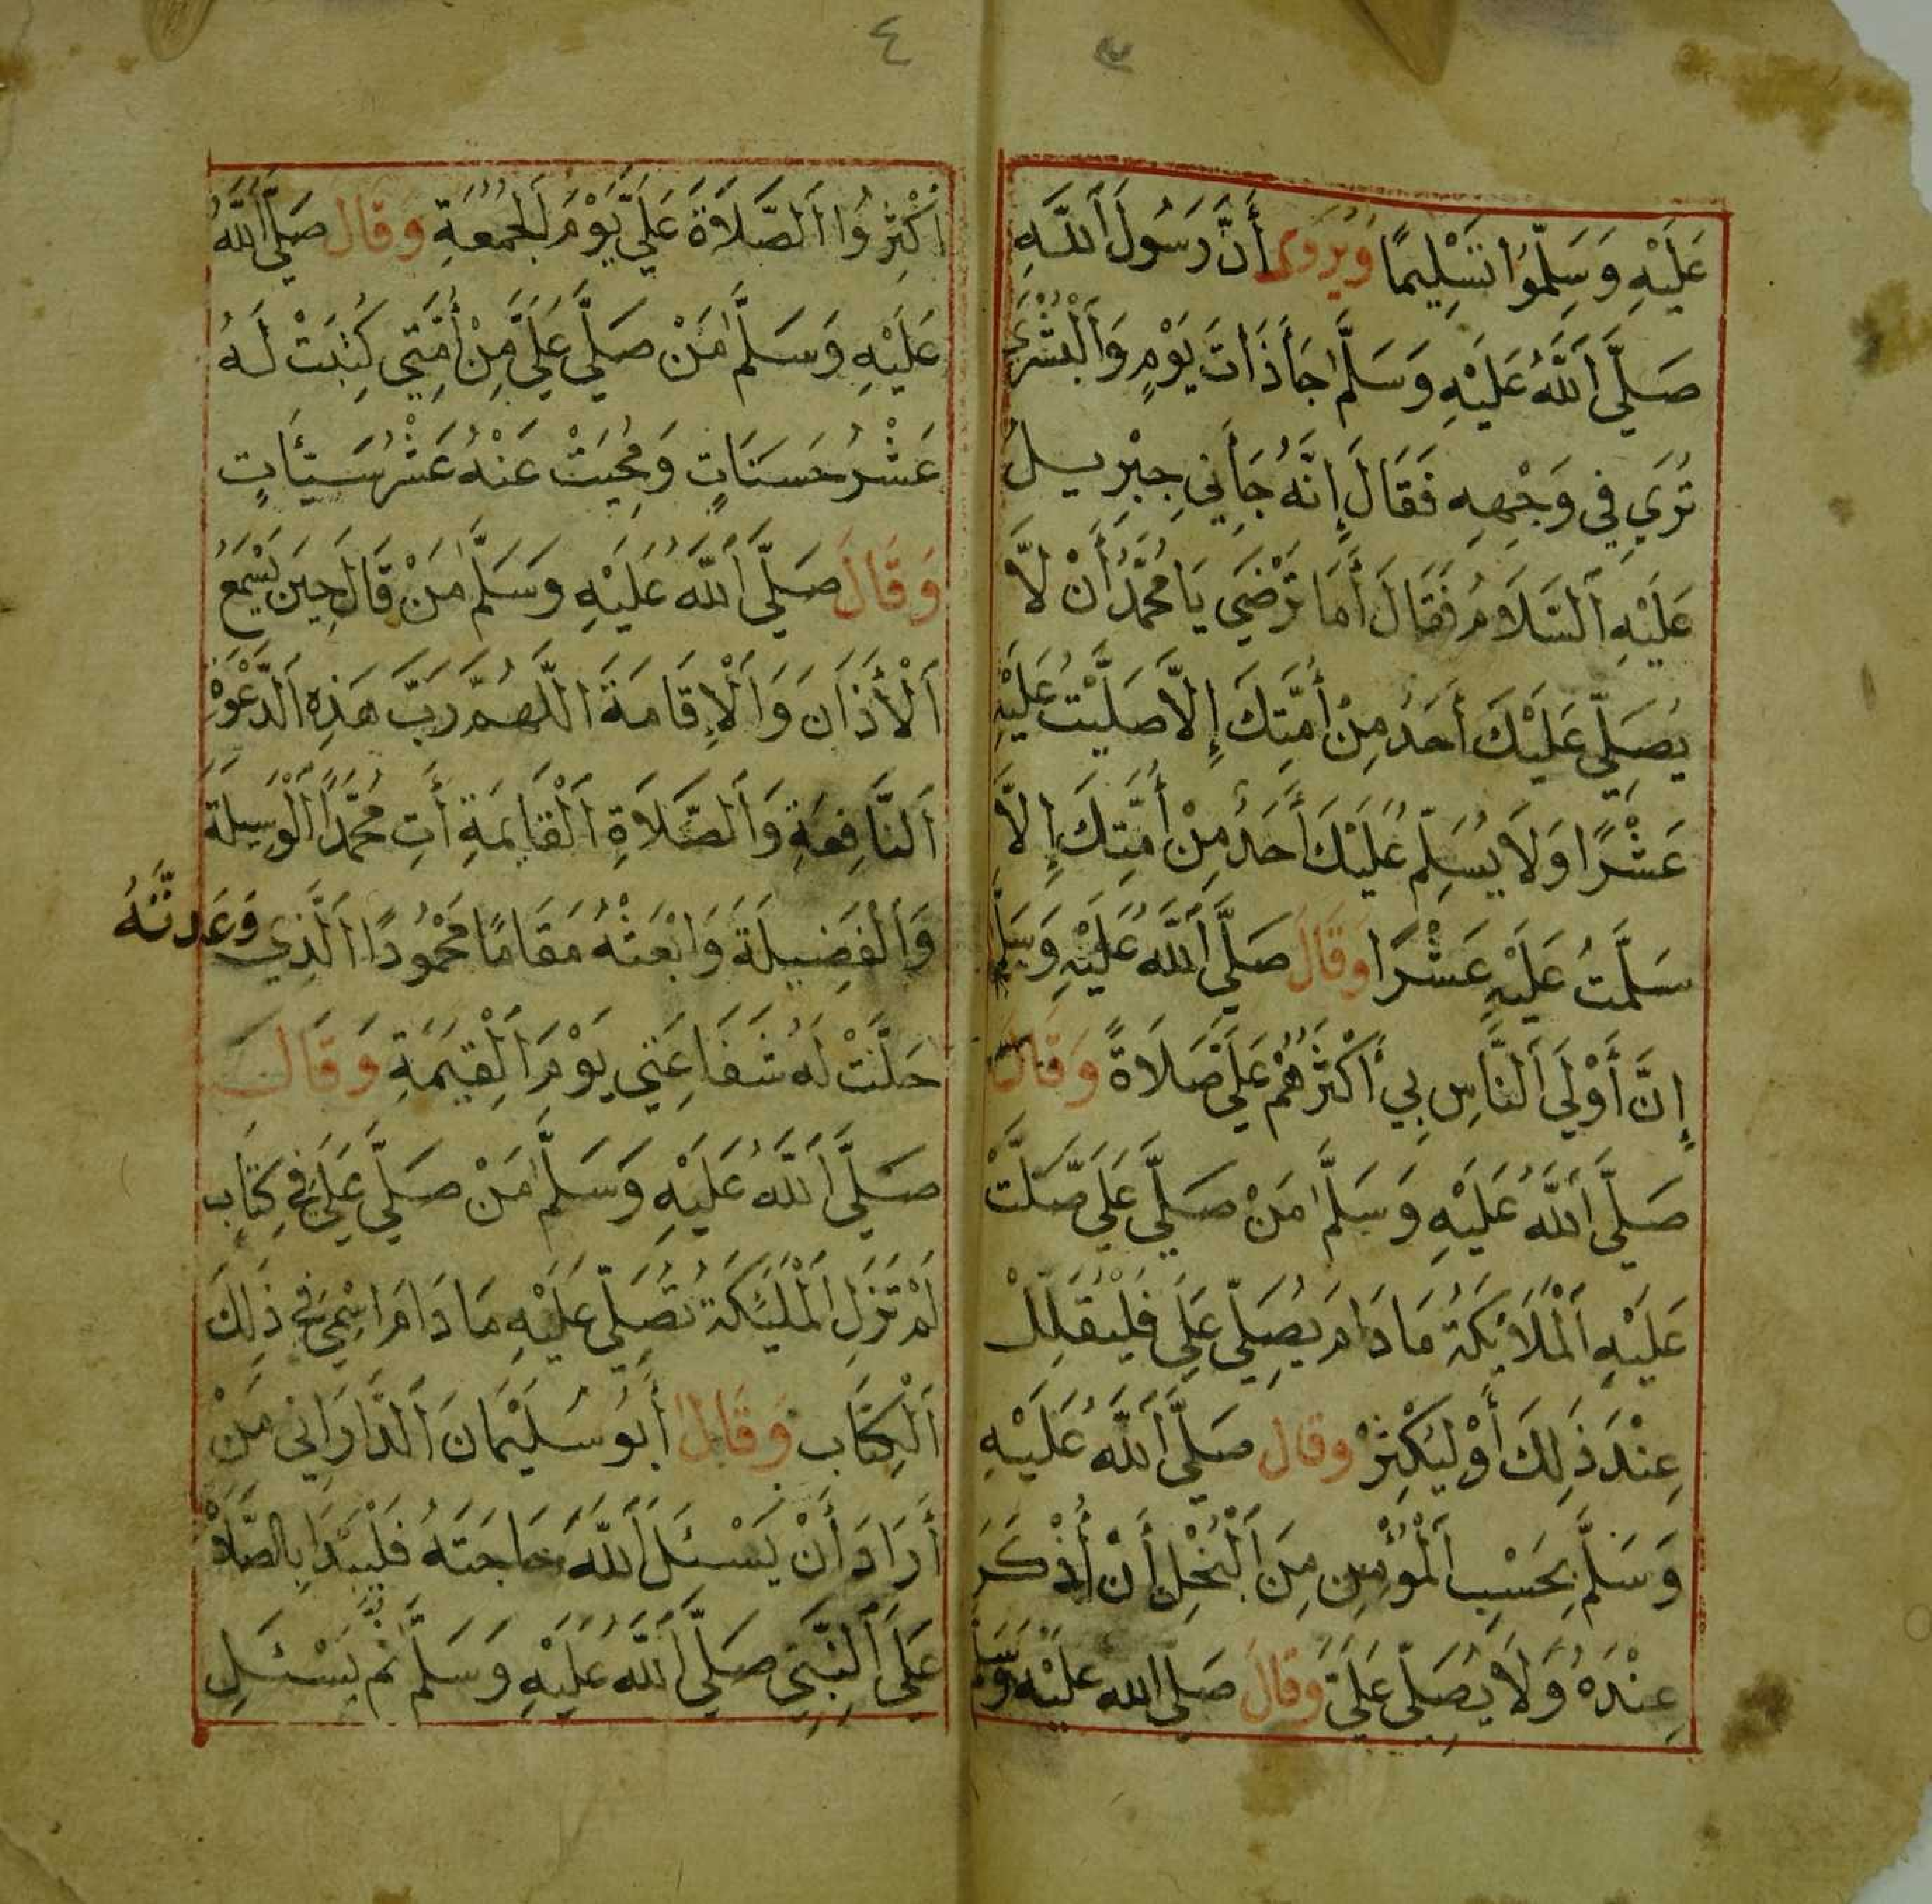 ٣
عَلَيْهِ وَسَلِّمُوا تَسْلِيمًا وَيُرْوَى أَنَّ رَسُولَ اَللَّهِ
صَلَّي اَللَّهُ عَلَيْهِ وَسَلَّمَ جَاَ ذَاتَ يَوْمٍ وَاَلْبُشْرَي
تُرَي فِي وَجْهِهِ فَقَالَ إِنَّهُ جَاَنِي جِبْرِيلُ
عَلَيْهِ اَلسَّلَامُ فَقَالَ أَمَا تَرْضَي يَا مُحَمَّدُ أَنْ لَّا
يُصَلِّي عَلَيْكَ أَحَدُ مِنْ أُمَّتِكَ إِلَّا صَلَّيْتُ عَلَيْهِ
عَشْرًا وَلَا يُسَلِّمُ عَلَيْكَ أَحَدُ مِنْ أُمَّتِكَ إِلَّا
سَلَّمْتُ عَلَيْهِ عَشْرًا وَقَالَ صَلَّي اَللَّهُ عَلَيْهِ وَسَلَّمَ
إِنَّ أَوْلَي اَلنَّاسِ بِي أَكْثَرُهُمْ عَلَيَّ صَلَاةً وَقَالَ
صَلَّي اَللَّهُ عَلَيْهِ وَسَلَّمَ مَنْ صَلَّي عَلَيَّ صَلَّتْ
عَلَيْهِ اَلْمَلَائِكَةُ مَا دَامَ يُصَلِّي عَلَيَّ فَلْيُقَلِّلْ
عِنْدَ ذَلِكَ أَوْ لِيُكْثِرْ وَقَالَ صَلَّي اَللَّهُ عَلَيْهِ
وَسَلَّمَ بِحَسْبِ اَلْمُؤْمِنِ مِنَ اَلْبُخْلِ أَنْ أُذْكَرَ
عِنْدَهُ وَلَا يُصَلِّي عَلَيَّ وَقَالَ صَلَّي اللَّه عَلَيْهِ وَسَلَّمَ
٤
اَكْثِرُوا اَلصَّلَاةَ عَلَيَّ يَوْمَ اَلْجُمُعَةِ وَقَالَ صَلَّي اَللَّهُ
عَلَيْهِ وَسَلَّمَ مَنْ صَلَّي عَلَيَّ مِنْ أُمَّتِي كُتِبَتْ لَهُ
عَشْرُ حَسَنَاتٍ وَمُحِيَتْ عَنْهُ عَشْرُ سَيِّئَاتٍ
وَقَالَ صَلَّي اَللَّهُ عَلَيْهِ وَسَلَّمَ مَنْ قَالَ حِينَ يَسْمَعُ
اَلْأَذَانَ وَاَلْإِقَامَةَ اللَّهُمَّ رَبَّ هَذِهِ اَلدَّعْوَةِ
اَلنَّافِعَةِ وَاَلصَّلَاةِ اَلْقَايِمَةِ أَتِ مُحَمَّدًا اَلْوَسِيلَةَ
وَاَلْفَضِيلَةَ وَابْعَثْهُ مَقَامًا مَحْمُودًا اَلَّذِي وَعَدتَّهُ
حَلَّتْ لَهُ شَفَاعَتِي يَوْمَ اَلْقِيَمَةِ وَقَالَ
صَلَّي اَللَّهُ عَلَيْهِ وَسَلَّمَ مَنْ صَلَّي عَلَيَّ فِي كِتَابٍ
لَمْ تَزَلِ اَلْمَلَيِٕكَةُ تُصَلِّي عَلَيْهِ مَا دَامَ اسْمِي فِي ذَلِكَ
اَلْكِتَابِ وَقَالَ أَبُو سُلَيْمَانَ اَلدَّارَانِي مَنْ
أَرَادَ أَنْ يَسْئَلَ اَللَّهَ حَاجَتَهُ فَلْيَبْدَا بِالصَّلَاةِ
عَلَي اَلنَّبِيِّ صَلَّي اَللَّهُ عَلَيْهِ وَسَلَّمَ ثُمَّ يَسْئَلِ